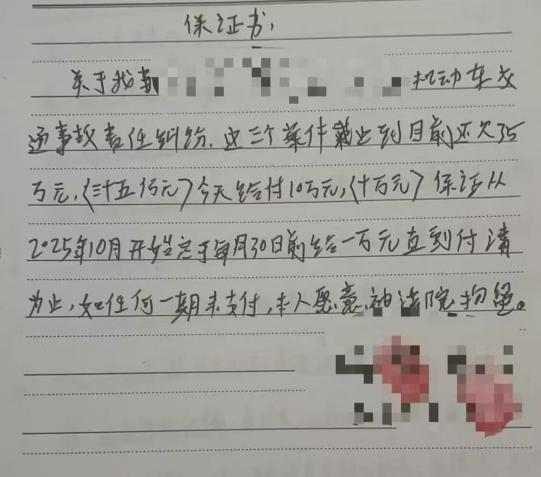 保证书,
关于我 机动车交
通事故责任纠纷,这三个案件截止到目前还欠35
万元,(三十五万元)今天给付10万元,(十万元)保证从
2025年10月开始定于每月30日前给一万元直到付清
为止,如任何一期未支付,本人愿意被法院拘留。